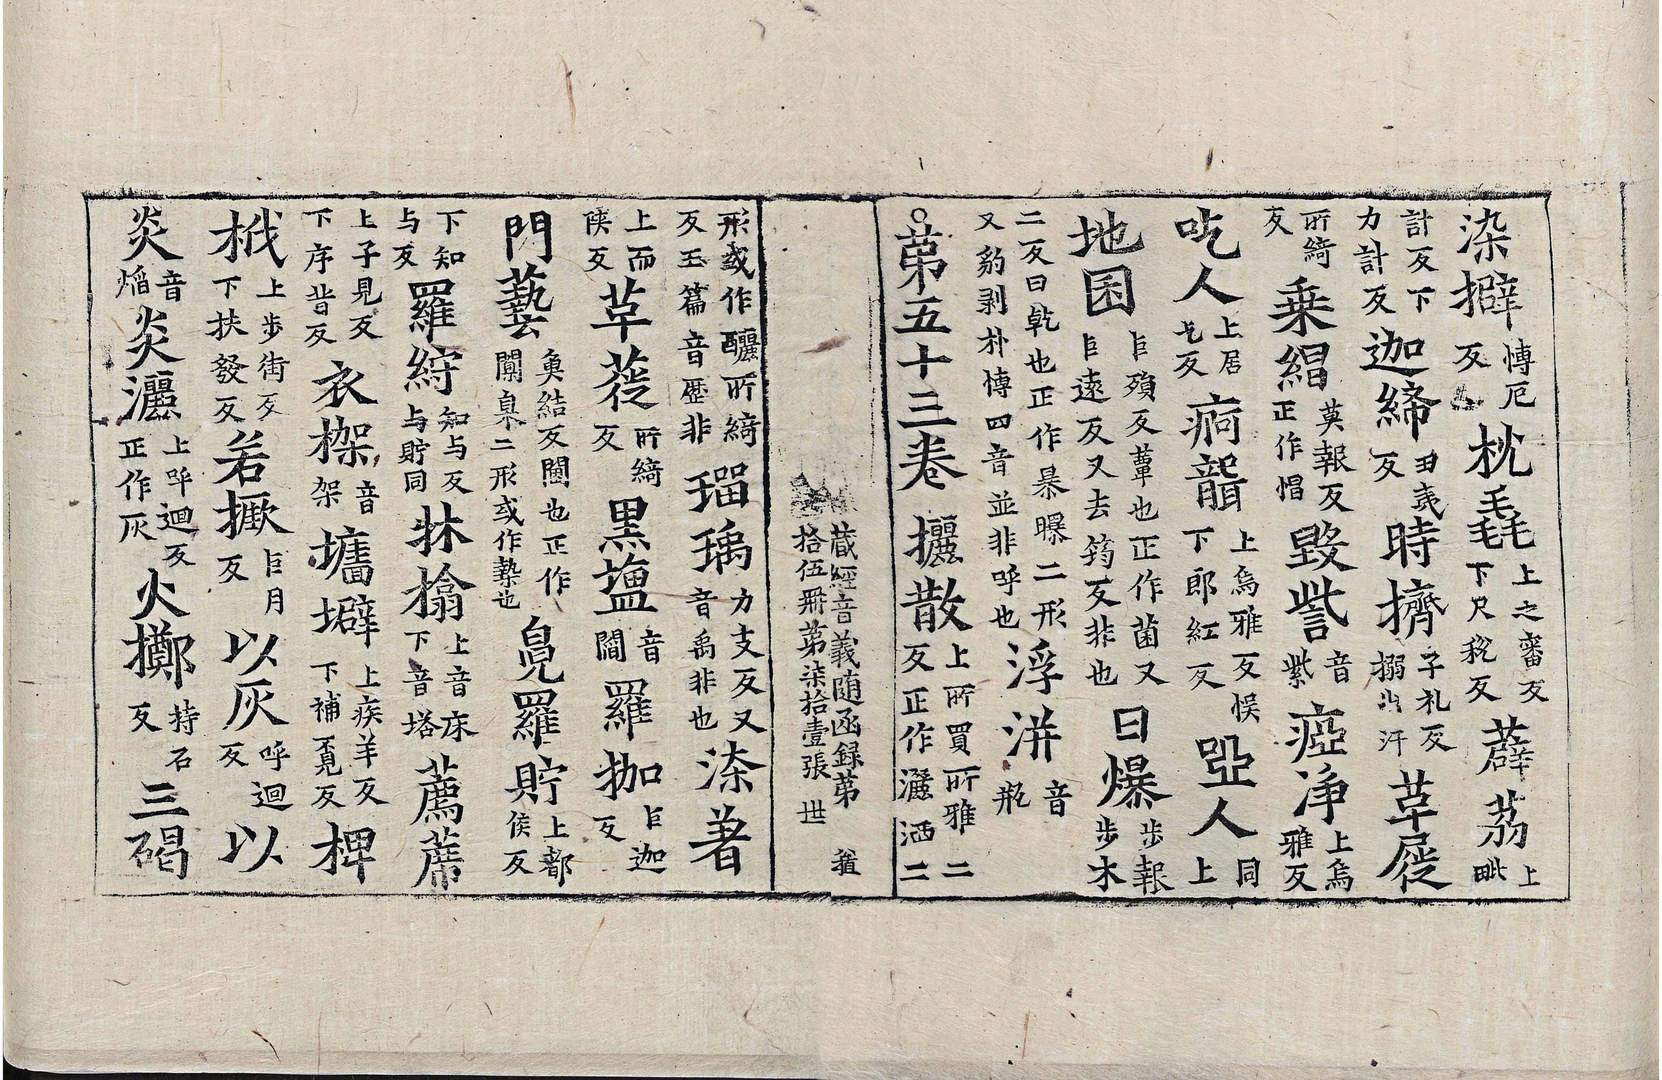 染擗愽厄反枕毳上之審反下尺稅反薜荔上毗
計反下力計反迦締田夷反時擠子札反搦出汗草屣
所綺反乗緝莫報反正作帽毀訾音紫瘂浄上烏雅反
吃人上居乞反痾聾上烏雅反悮下郎紅反啞人同上
地囷巨殞反蕈也正作菌又巨逺反又去筠反非也曰爆步報步木
二反曰乾也正作暴曝二形又豹剥朴愽四音並非呼也浮洴音瓶
○苐五十三卷攦散上所買所雅二反正作灑洒二
藏經音義随函録苐拾伍冊苐柒拾壹張 世
形或作釃所綺反玉篇音歷非瑠瑀力支反又音禹非也㓒著
上而陝反草蓰所綺反黒塩音閻羅㧝巨迦反
門藝魚結反闑也正作闑臬二形或作槷也皃羅貯上都侯反
下知与反羅紵知与反与貯同牀搨上音床下音塔薦蓆
上子見反下序昔反衣榤音架墻壀上疾羊反下補覓反椑
栰上步街反下扶發反若撅巨月反以灰呼迴反以
炎音熖炎灑上呼迴反正作灰火擲持石反三碣